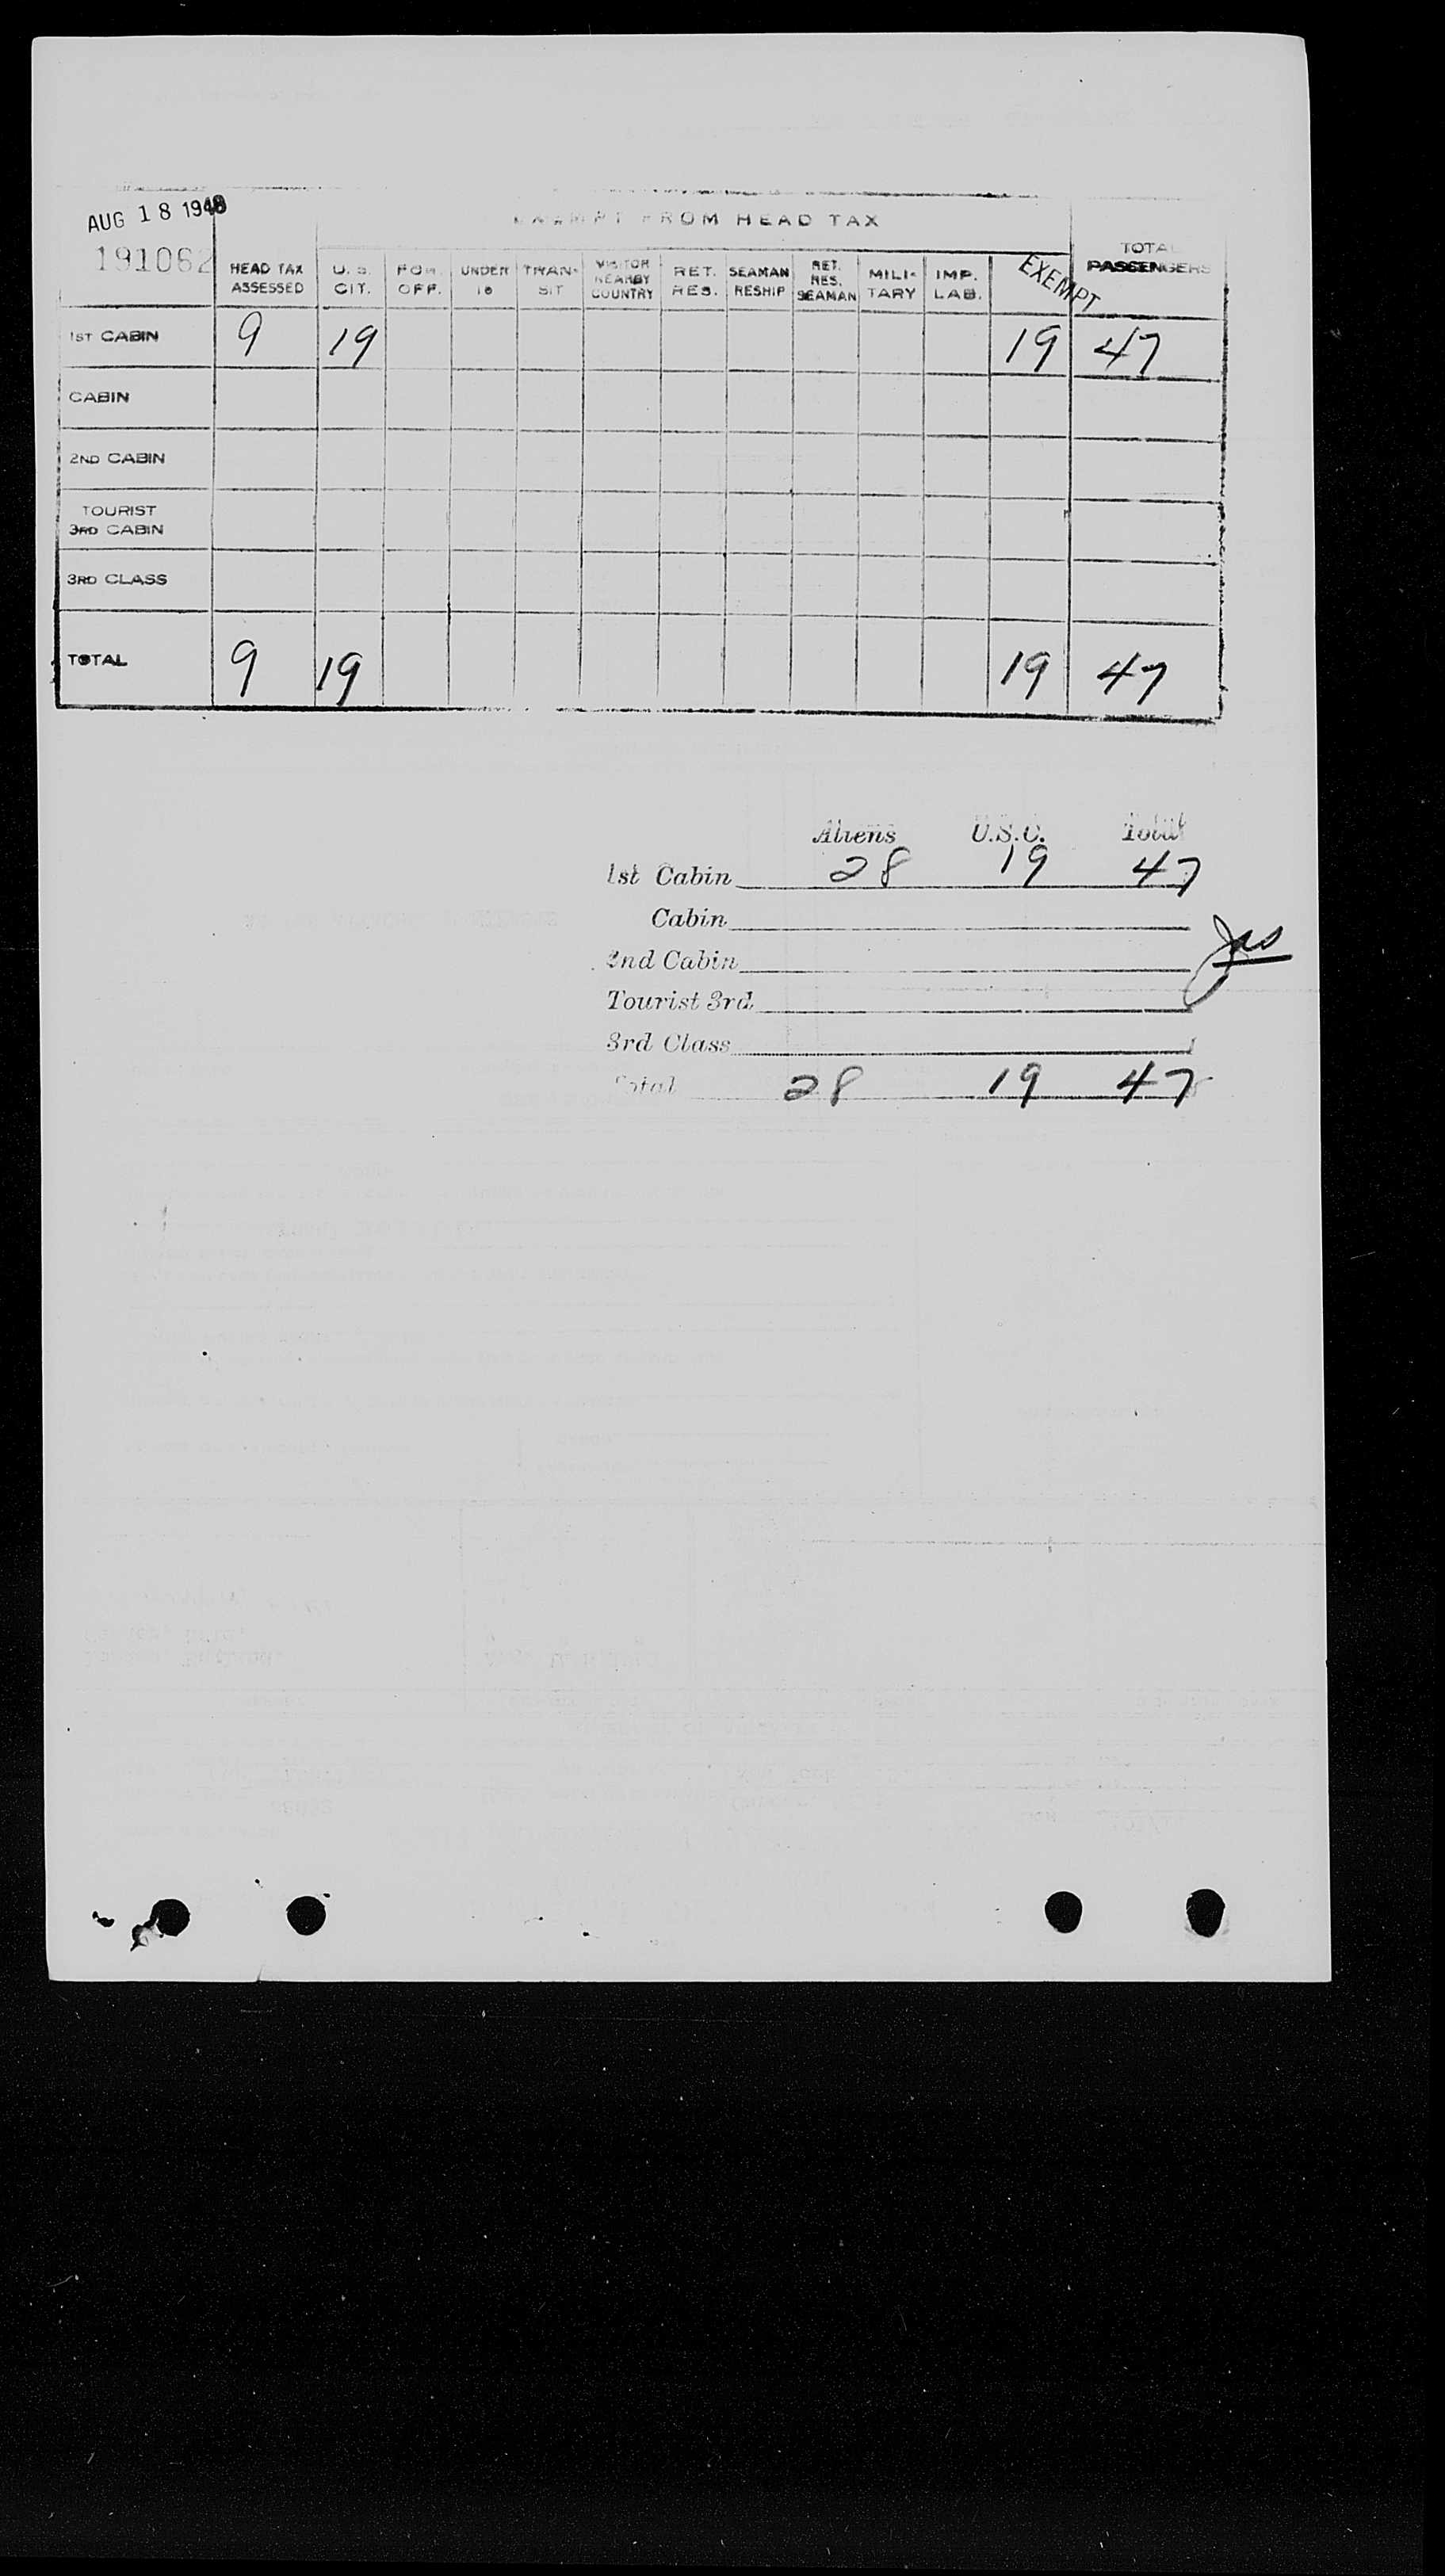 AUG 18 1948
191062
EXEMPT FROM HEAD TAX
HEAD TAX ASSESSED U. S. CIT. FOR. OFF. UNDER 16 TRAN- SIT VISITOR NEARBY COUNTRY RET. RES. SEAMAN RESHIP RET. RES. SEAMAN MILI- TARY IMP. LAB. EXEMPT TOTAL PASSENGERS
1ST CABIN 9 19 19 47
CABIN
2ND CABIN
TOURIST
3RD CABIN
3RD CLASS
TOTAL 9 19 19 47
Aliens U.S.C. Total
1st Cabin 28 19 47
Cabin
2nd Cabin
Tourist 3rd
3rd Class
Total 28 19 47